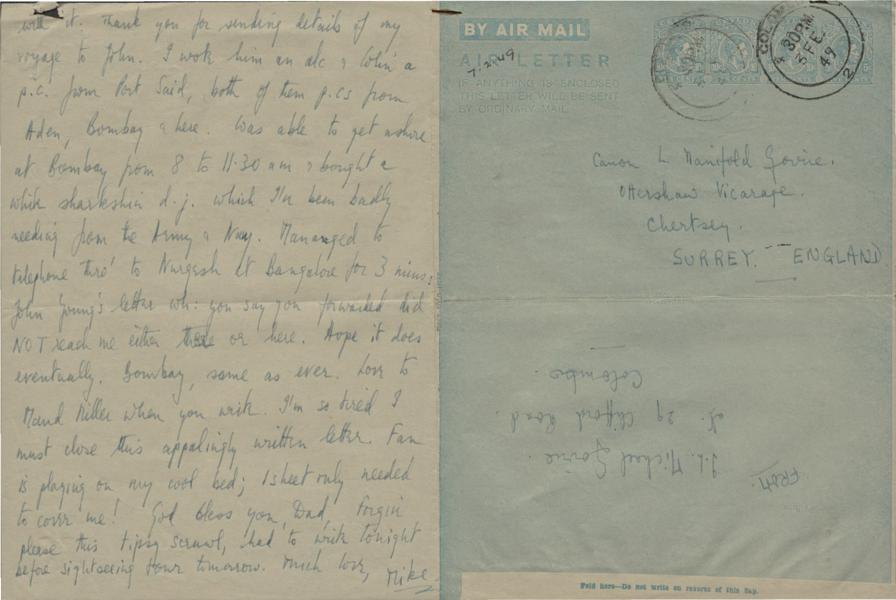 with it. Thank you for sending details of my
voyage to John. I wrote him an a/c & Colin a
p.c. from Port Said, both of them p.cs from
Aden, Bombay & here. Was able to get ashore
at Bombay from 8 to 11.30 am & bought a
white sharkskin d.j. which I've been badly
needing from the Army & Navy. Managed to
telephone thro' to Nargesh at Bangalore for 3 mins:
John Young's letter wh: you say you forwarded did
NOT reach me either there or here. Hope it does
eventually. Bombay, same as ever. Love to
Maud Miller when you write. I'm so tired I
must close this appalingly written letter. Fan
is playing on my cool bed; 1 sheet only needed
to cover me! God bless you, Dad, Forgive
please this tipsy scrawl, had to write tonight
before sightseeing tour tomorrow. Much love, Mike
BY AIR MAIL
AIR LETTER
IF ANYTHING IS ENCLOSED
THIS LETTER WILL BE SENT
BY ORDINARY MAIL.
7.2.49
COLOM
4 30PM
3 FE
49
2
Canon L Manifold
Ottershaw Vicarage.
Chertsey.
SURREY. ENGLAND
FROM:
Michael
29 Clifford Road
Colombo.
Fold here—Do not write on reverse of this flap.